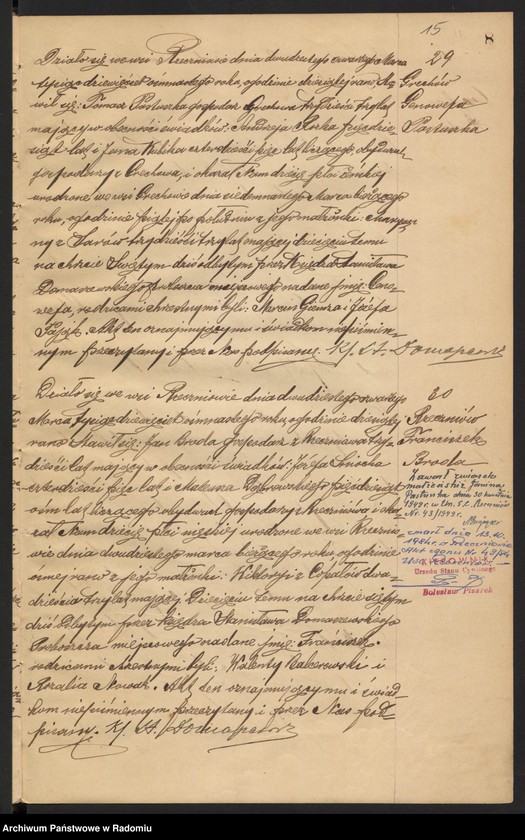 15
8
29
Grochów
Genowefa
Pastuszka
Działo się we wsi Rzeczniowie dnia dwudziestego czwartego Marca
tysiąc dziewięćset ósmnastego roku, o godzinie dziesiątej rano. Sta
wił się: Tomasz Pastuszka gospodarz z Grochowa trzydzieści trzy lat
mający w obecności świadków: Andrzeja Rorka pięćdzie
siąt lat i Jana czterdzieści pięć lat liczącego, obydwa
gospodarzy z Grochowa, i okazał Nam dziecię płci żeńskiej
urodzone we wsi Grochowie dnia siedemnastego Marca bieżącego
roku, o godzinie piątej po południu z jego małżonki: Maryan-
ny z trzydzieści trzy lat mającej dziecięciu temu
na chrzcie Świętym dziś odbytym przez Księdza Stanisława
Domaszewskiego proboszcza miejscowego nadane imię: Geno-
wefa, rodzicami chrzestnymi byli: i Józefa
Pająk. Akt ten oznajmującymu i świadkom niepiśmien-
nym przeczytany i przez Nas podpisany. Ks. St. Domaszewski
30
Rzeczniów
Franciszek
Broda
Działo się we wsi Rzeczniowie dnia dwudziestego czwartego
Marca tysiąc dziewięćset ósmnastego roku, o godzinie dziesiątej
rano. Stawił się: Jan Broda gospodarz z Rzeczniowa trzy-
dzieści lat mający w obecności świadków: Józefa
czterdzieści pięć lat i Mateusza Dąbrowskiego pięćdziesiąt
ośm lat liczącego obydwa gospodarzy z Rzeczniowa i oka-
zał Nam dziecię płci męzkiej urodzone we wsi Rzecznio-
wie dnia dwudziestego marca bieżącego roku, o godzinie
ósmej rano z jego małżonki: Wiktoryi z dwa-
dzieścia trzy lat mającej. Dziecięciu temu na chrzcie świętym
dziś odbytym przez Księdza Stanisława Domaszewskiego
Proboszcza miejscowego nadane imię: Franciszek.
rodzicami chrzestnymi byli: Walenty Naborowski i
Rozalia Nowak. Akt ten oznajmującymu i świad-
kom niepiśmiennym przeczytany i przez Nas pod-
pisany. Ks. St. Domaszewski
Zawarł związek
małżeński z Janiną
Pastuszka dnia 30 kwietnia
1949 r. w Usc. Rzeczniów
Nr. 43/1949 r.
zmarł dnia 13.10.
KIEROWNIK
Urzędu Stanu Cywilnego
Bolesław Pisarek
Archiwum Państwowe w Radomiu